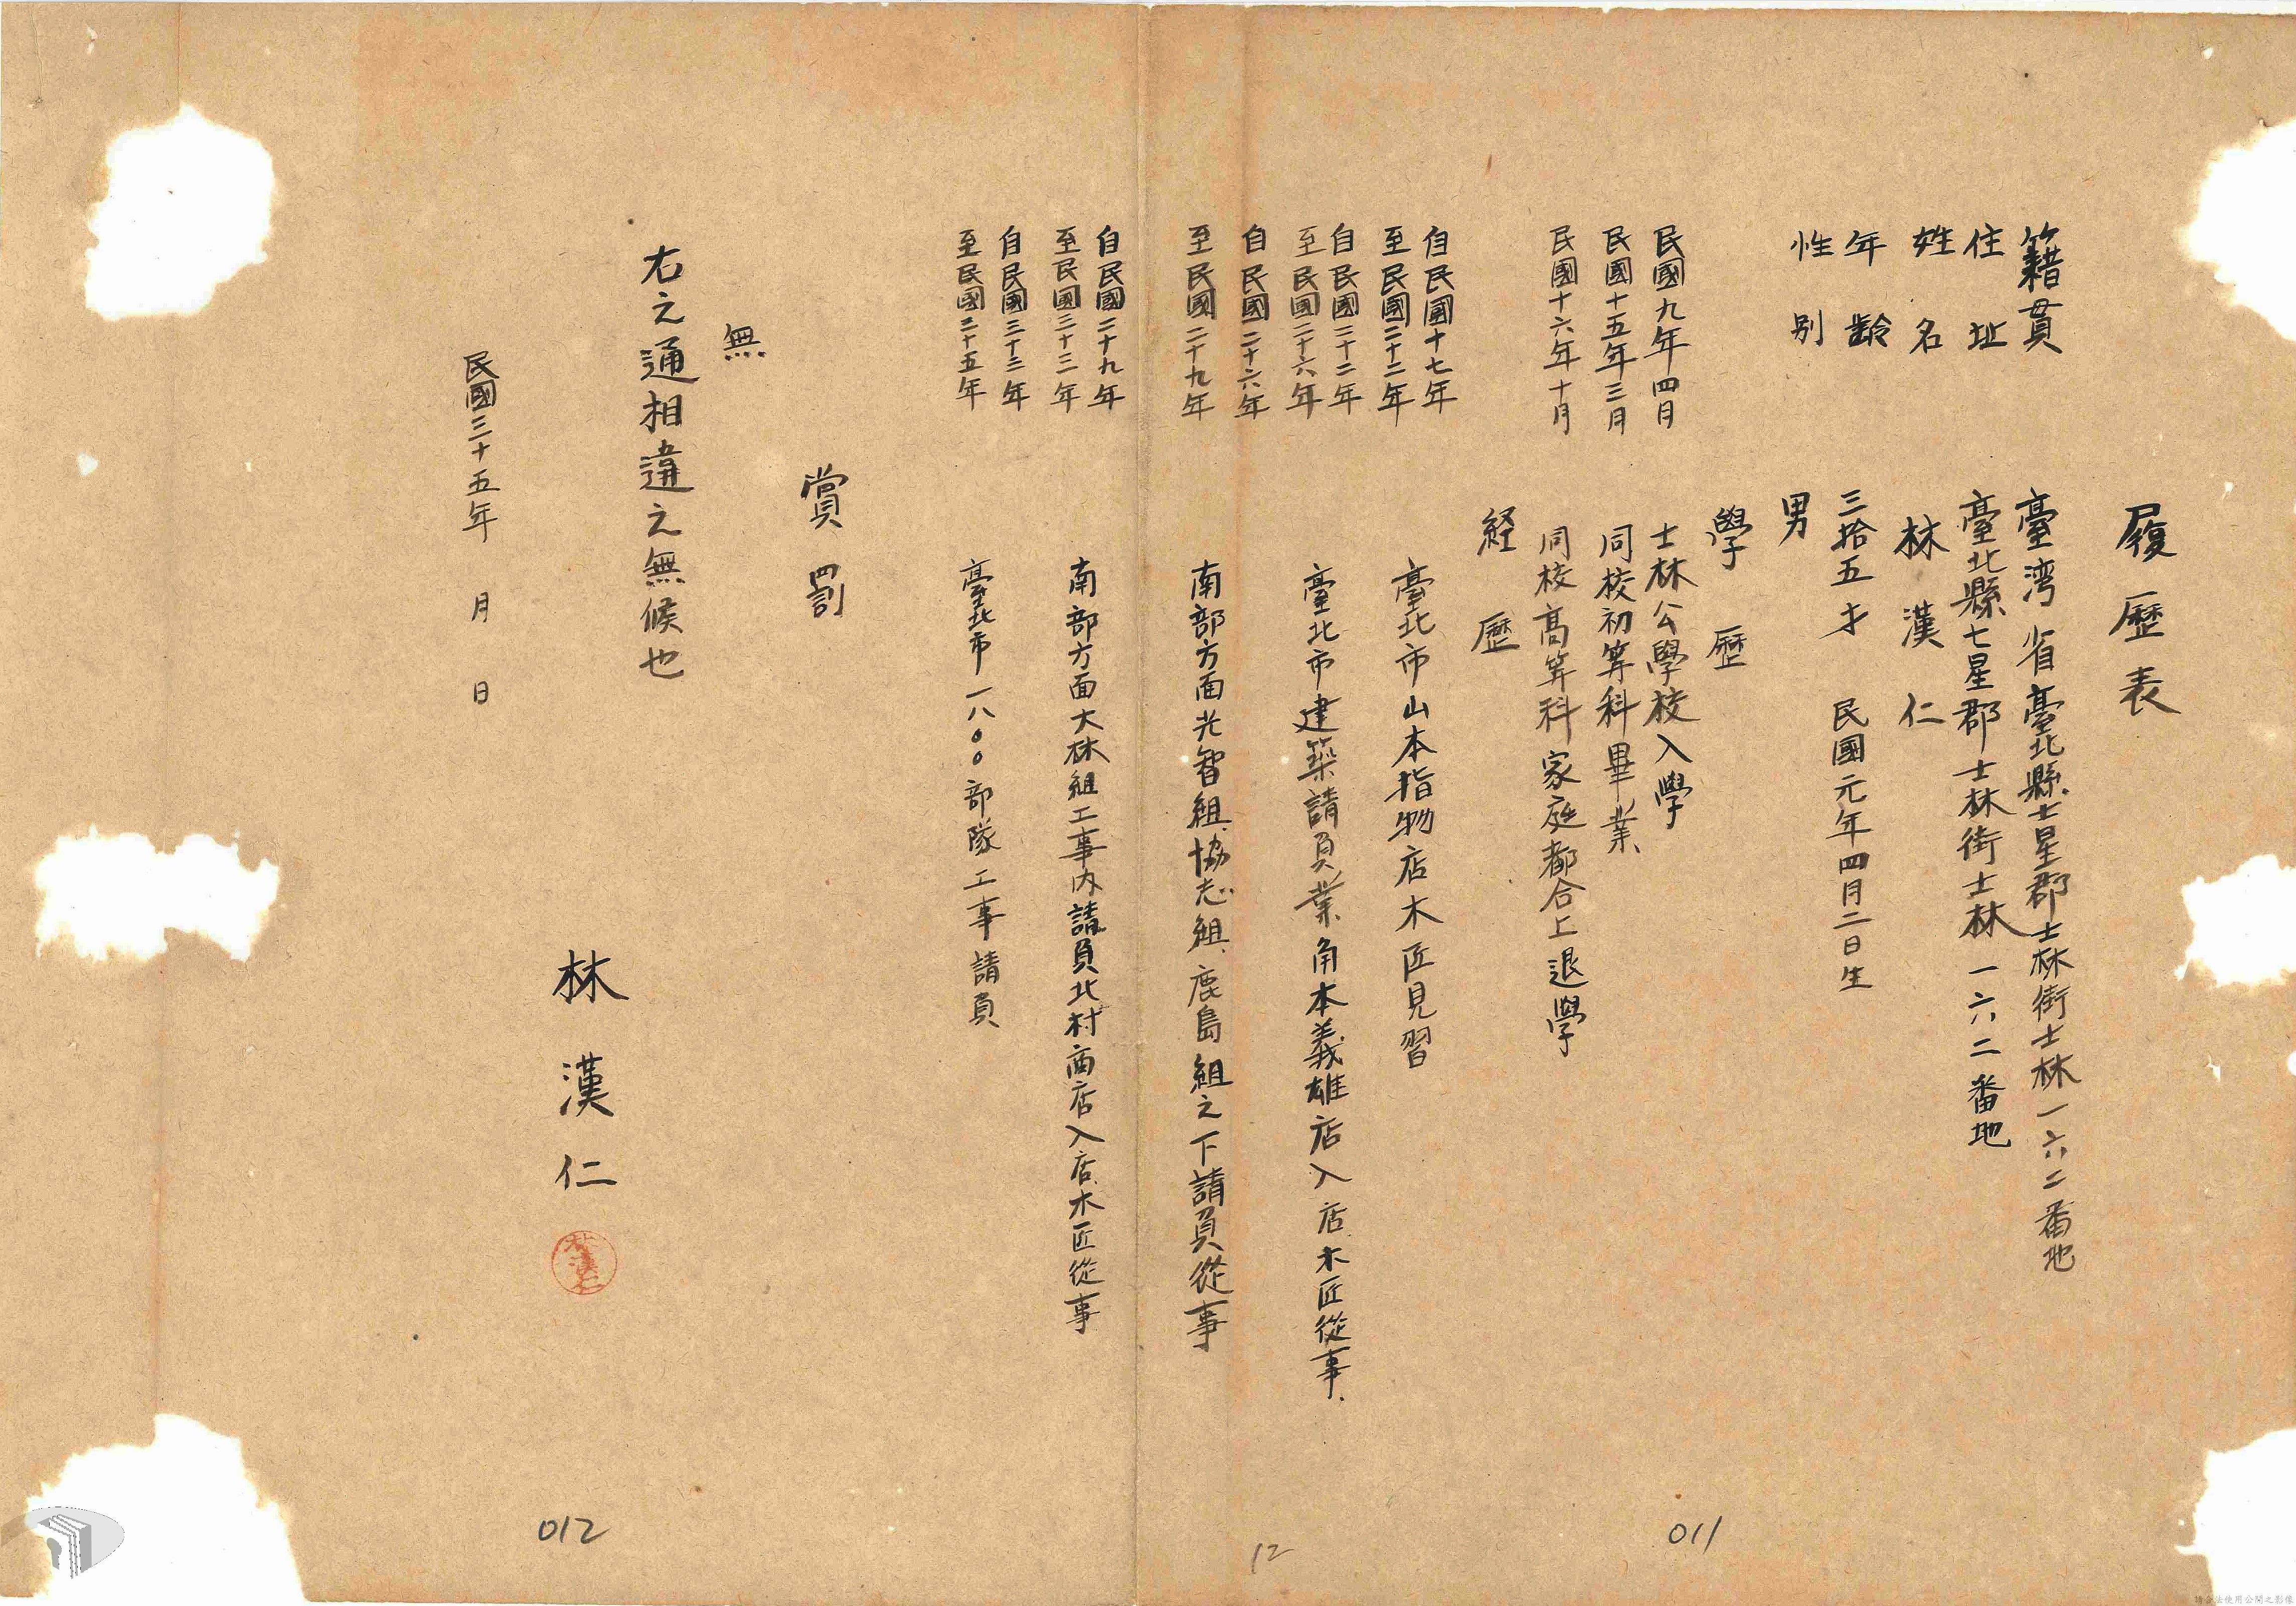 履歷表
籍貫 臺湾省臺北縣七星郡士林街士林一六二番地
住址 臺北縣七星郡士林街士林一六二番地
姓名 林漢仁
年齡 三拾五才 民國元年四月二日生
性別 男
學歷
民國九年四月 士林公學校入學
民國十五年三月 同校初等科畢業
民國十六年十月 同校高等科家庭都合上退學
経歷
自民國十七年
至民國二十二年 臺北市山本指物店木匠見習
自民國二十二年
至民國二十六年 臺北市建築請負業角本義雄店入店木匠從事、
自民國二十六年
至民國二十九年 南部方面光智組、協志組、鹿島組之下請負從事
自民國二十九年
至民國三十三年 南部方面大林組工事內請負北村商店入店木匠從事
自民國三十三年
至民國三十五年 臺北市一八〇〇部隊工事請負
賞罰
無
右之通相違之無候也
民國三十五年 月 日
林漢仁
林漢仁
011
12
012
請合法使用公開之影像